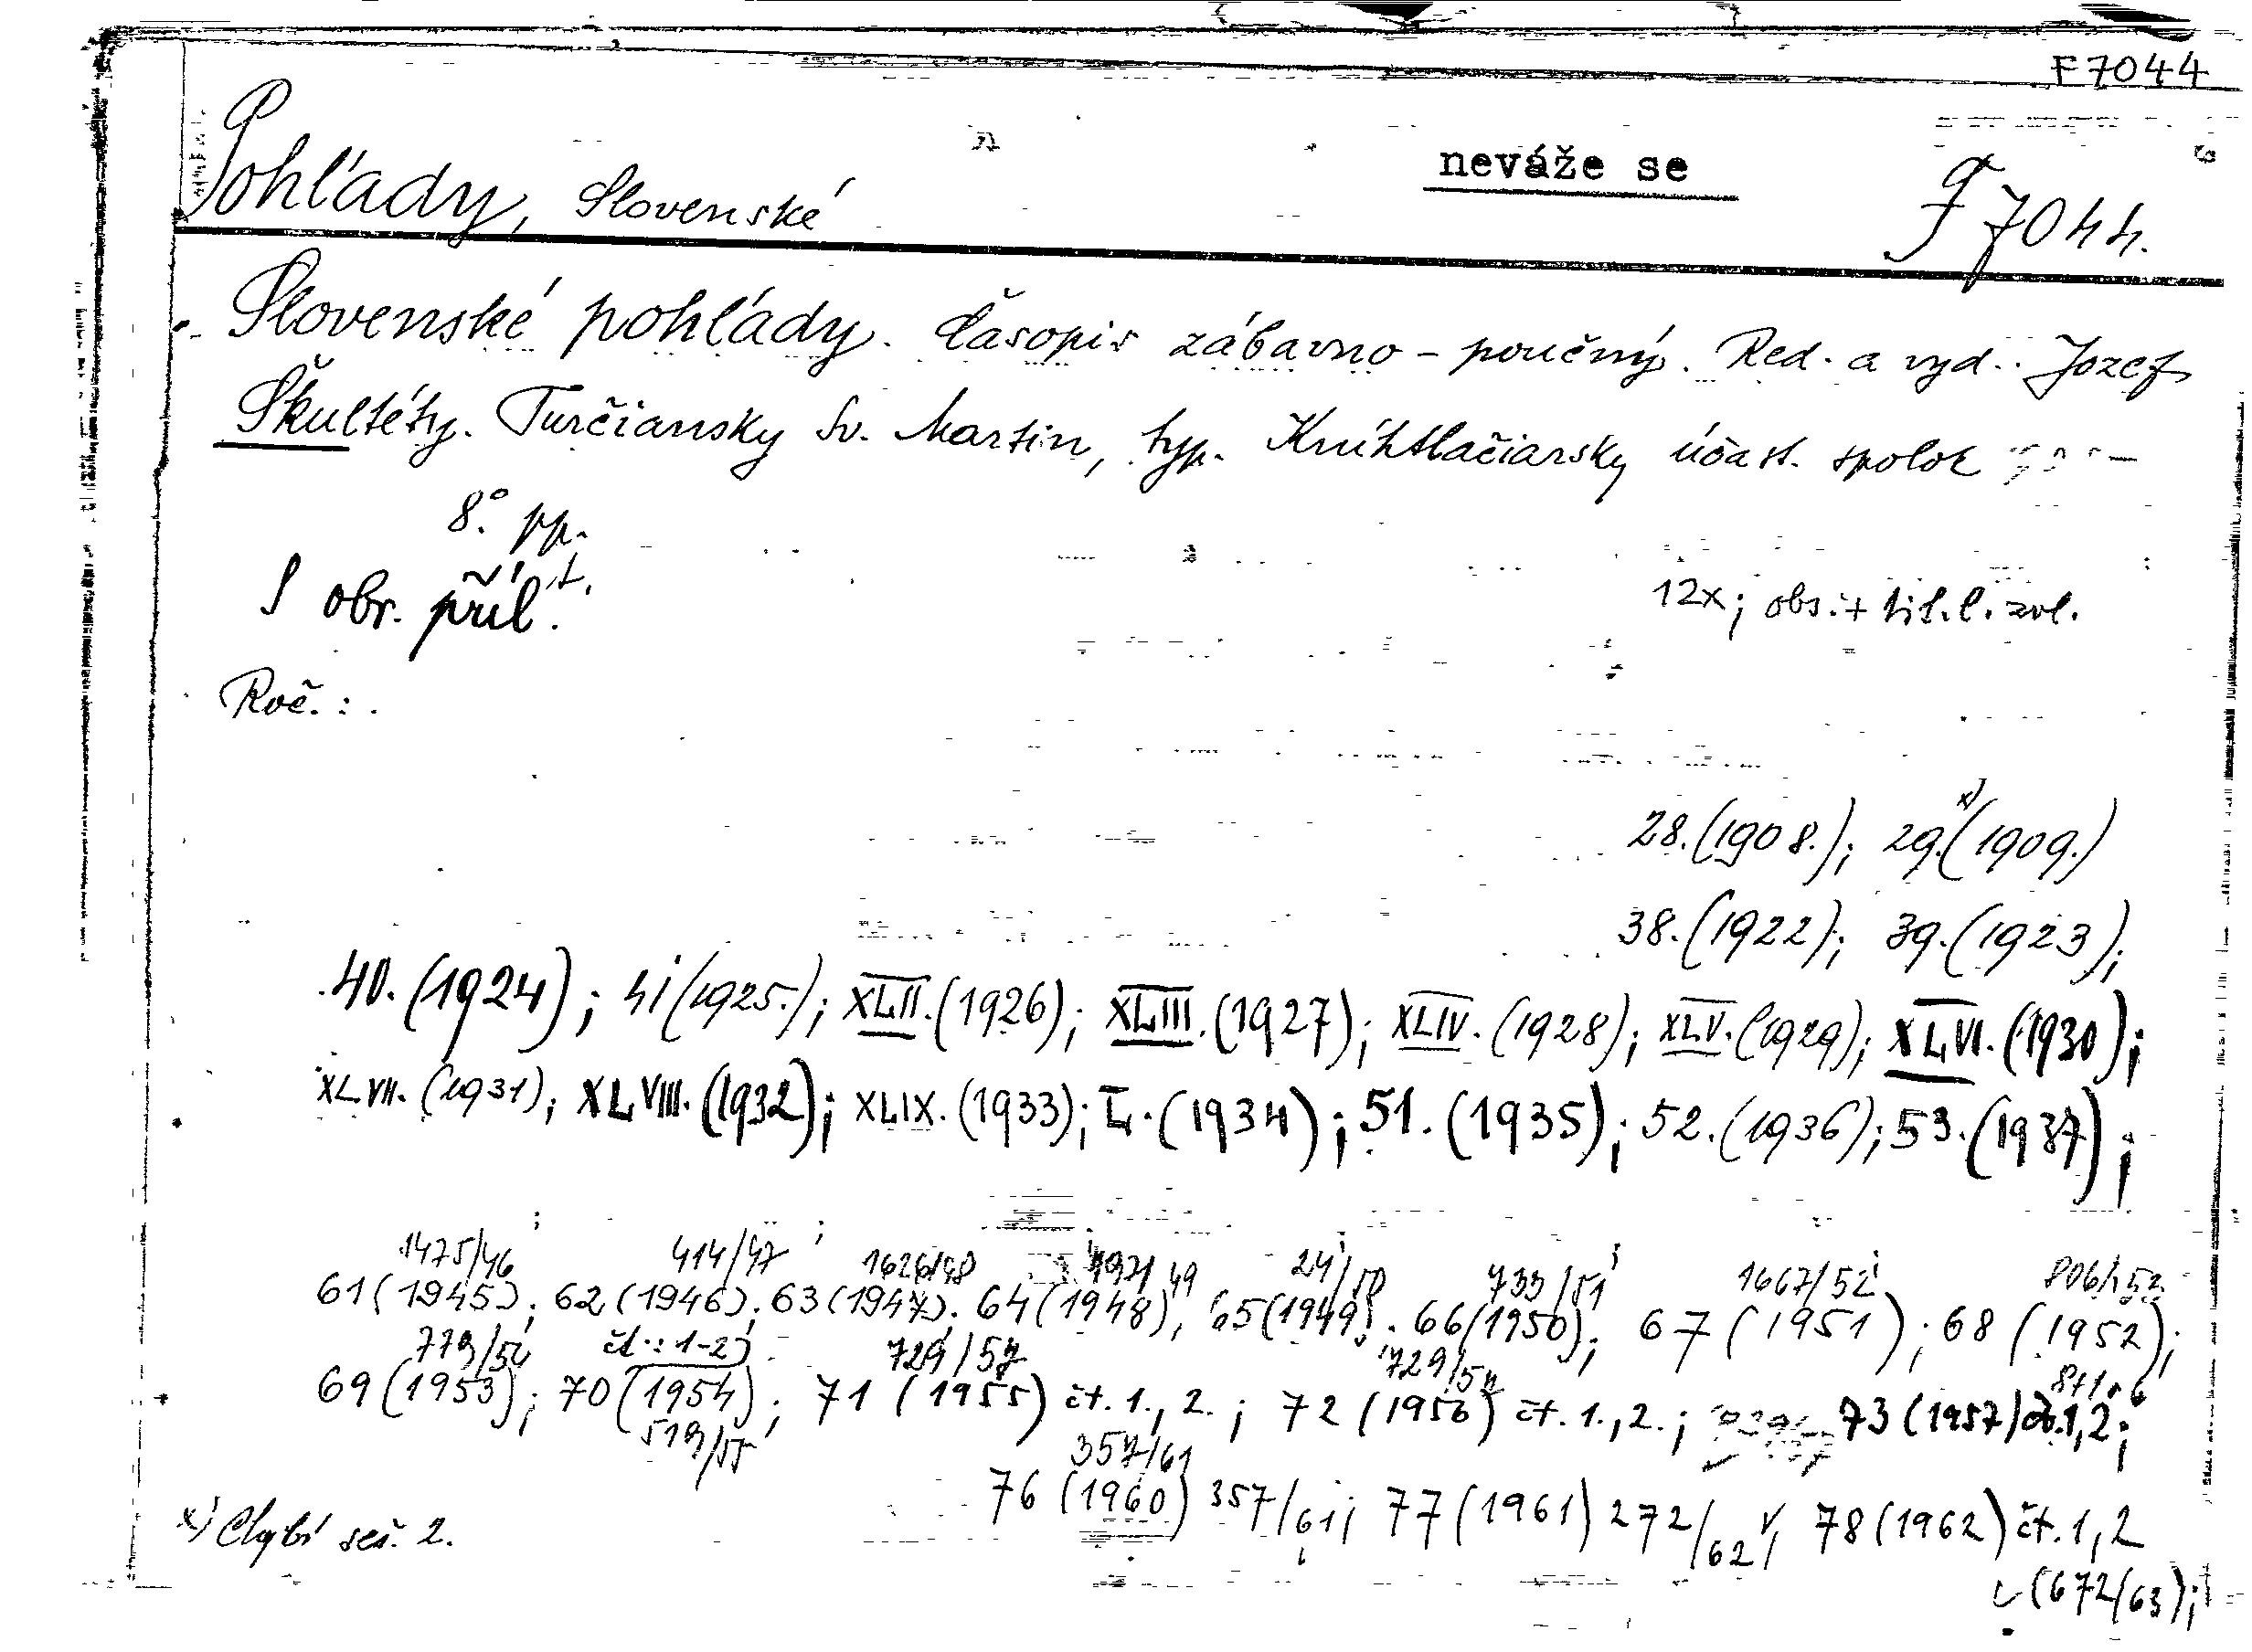 F 7044
neváže se
Pohľady, Slovenské F 7044.
Slovenské pohľady. Časopis zábavno-poučný. Red. a vyd.: Jozef
Škultéty. Turčiansky Sv. Martin, typ. Kníhtlačiarsky účast. spolok
8.° pp.
S obr. příl. t. 12x; obs. + tit. l. zvl.
Roč.:
28.(1908.); 29.x)(1909.)
38.(1922); 39.(1923);
40.(1924); 41(1925.); XLII.(1926); XLIII.(1927); XLIV.(1928); XLV.(1929); XLVI.(1930);
XLVII.(1931); XLVIII.(1932); XLIX.(1933); L.(1934); 51.(1935); 52.(1936); 53.(1937);
1475/46 414/47 1626/48 49 24/50 733/51 1667/52 806/53
61(1945); 62(1946); 63(1947); 64(1948); 65(1949); 66(1950); 67(1951); 68(1952);
779/54 čt.: 1-2 729/57 729/57
69(1953); 70(1954); 71(1955) čt. 1., 2.; 72(1956) čt. 1., 2.; 73(1957) čt. 1,2;
519/55 357/61
76(1960) 357/61; 77(1961) 272/62; 78(1962) čt. 1,2
x) Chybí seš. 2.
(672/63);